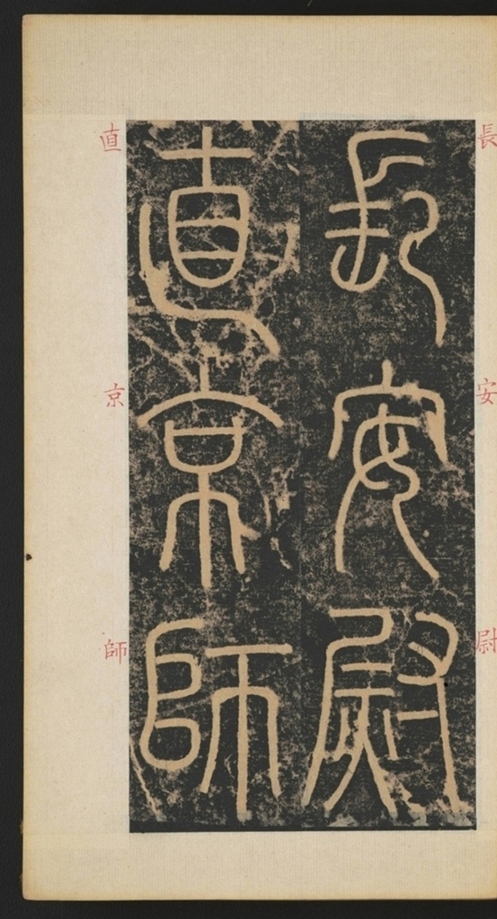 長安尉
直京師
長
安
尉
直
京
師